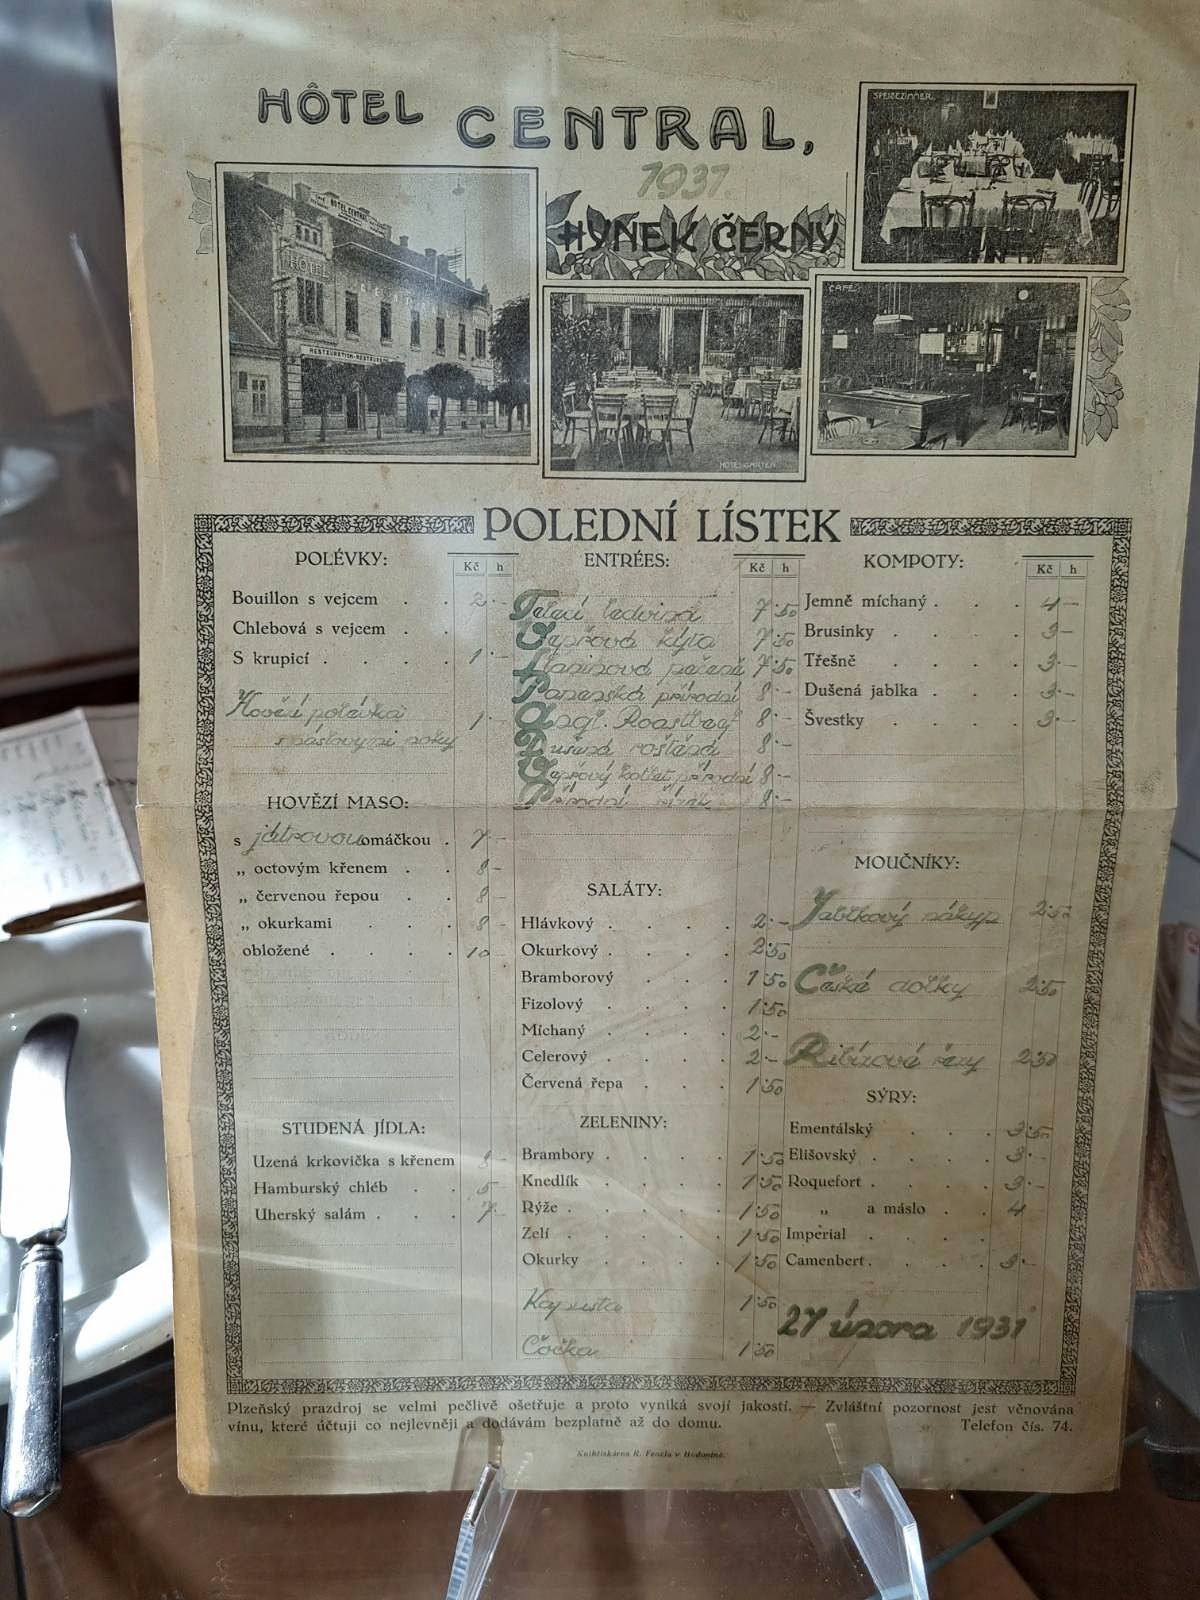 HÔTEL CENTRAL,
1931
HYNEK ČERNÝ
SPEISEZIMMER.
HOTEL CENTRAL
HOTEL
CENTRAL
RESTAURATION-RESTAURACE
CAFÉ
HOTELGARTEN
POLEDNÍ LÍSTEK
POLÉVKY:
Kč h
Bouillon s vejcem . . 2·–
Chlebová s vejcem . .
S krupicí . . . . 1·–
Hovězí polévka 1·–
s máslovými noky
HOVĚZÍ MASO:
s játrovou omáčkou . 7·–
„ octovým křenem . . 8·–
„ červenou řepou . . 8·–
„ okurkami . . . 8·–
obložené . . . . 10
STUDENÁ JÍDLA:
Uzená krkovička s křenem 8·–
Hamburský chléb . . 5·–
Uherský salám . . . 7·–
ENTRÉES:
Kč h
Telecí ledvina 7·50
Vepřová kýta 7·50
Slaninová pečeně 7·50
Panenská přírodní 8·–
Angl. Roastbeef 8·–
Dušená roštěná 8·–
Vepřový kotlet přírodní 8·–
Přírodní řízek 8·–
SALÁTY:
Hlávkový . . . . 2·–
Okurkový . . . . 2·50
Bramborový . . . 1·50
Fizolový . . . . 1·50
Míchaný . . . . 2·–
Celerový . . . . 2·–
Červená řepa . . . 1·50
ZELENINY:
Brambory . . . . 1·50
Knedlík . . . . 1·50
Rýže . . . . . 1·50
Zelí . . . . . 1·50
Okurky . . . . 1·50
Kapusta 1·50
Čočka 1·50
KOMPOTY:
Kč h
Jemně míchaný . . . 4·–
Brusinky . . . . 3·–
Třešně . . . . 3·–
Dušená jablka . . . 3·–
Švestky . . . . 3·–
MOUČNÍKY:
Jablkový nákyp 2·50
České dolky 2·50
Ribízové řezy 2·50
SÝRY:
Ementálský . . . 3·50
Elišovský . . . . 3·–
Roquefort . . . . 3·–
„ a máslo . . 4
Imperial . . . .
Camenbert . . . . 3·–
27 února 1931
Plzeňský prazdroj se velmi pečlivě ošetřuje a proto vyniká svojí jakostí. — Zvláštní pozornost jest věnována
vínu, které účtuji co nejlevněji a dodávám bezplatně až do domu. Telefon čís. 74.
Knihtiskárna R. Fencla v Hodoníně.